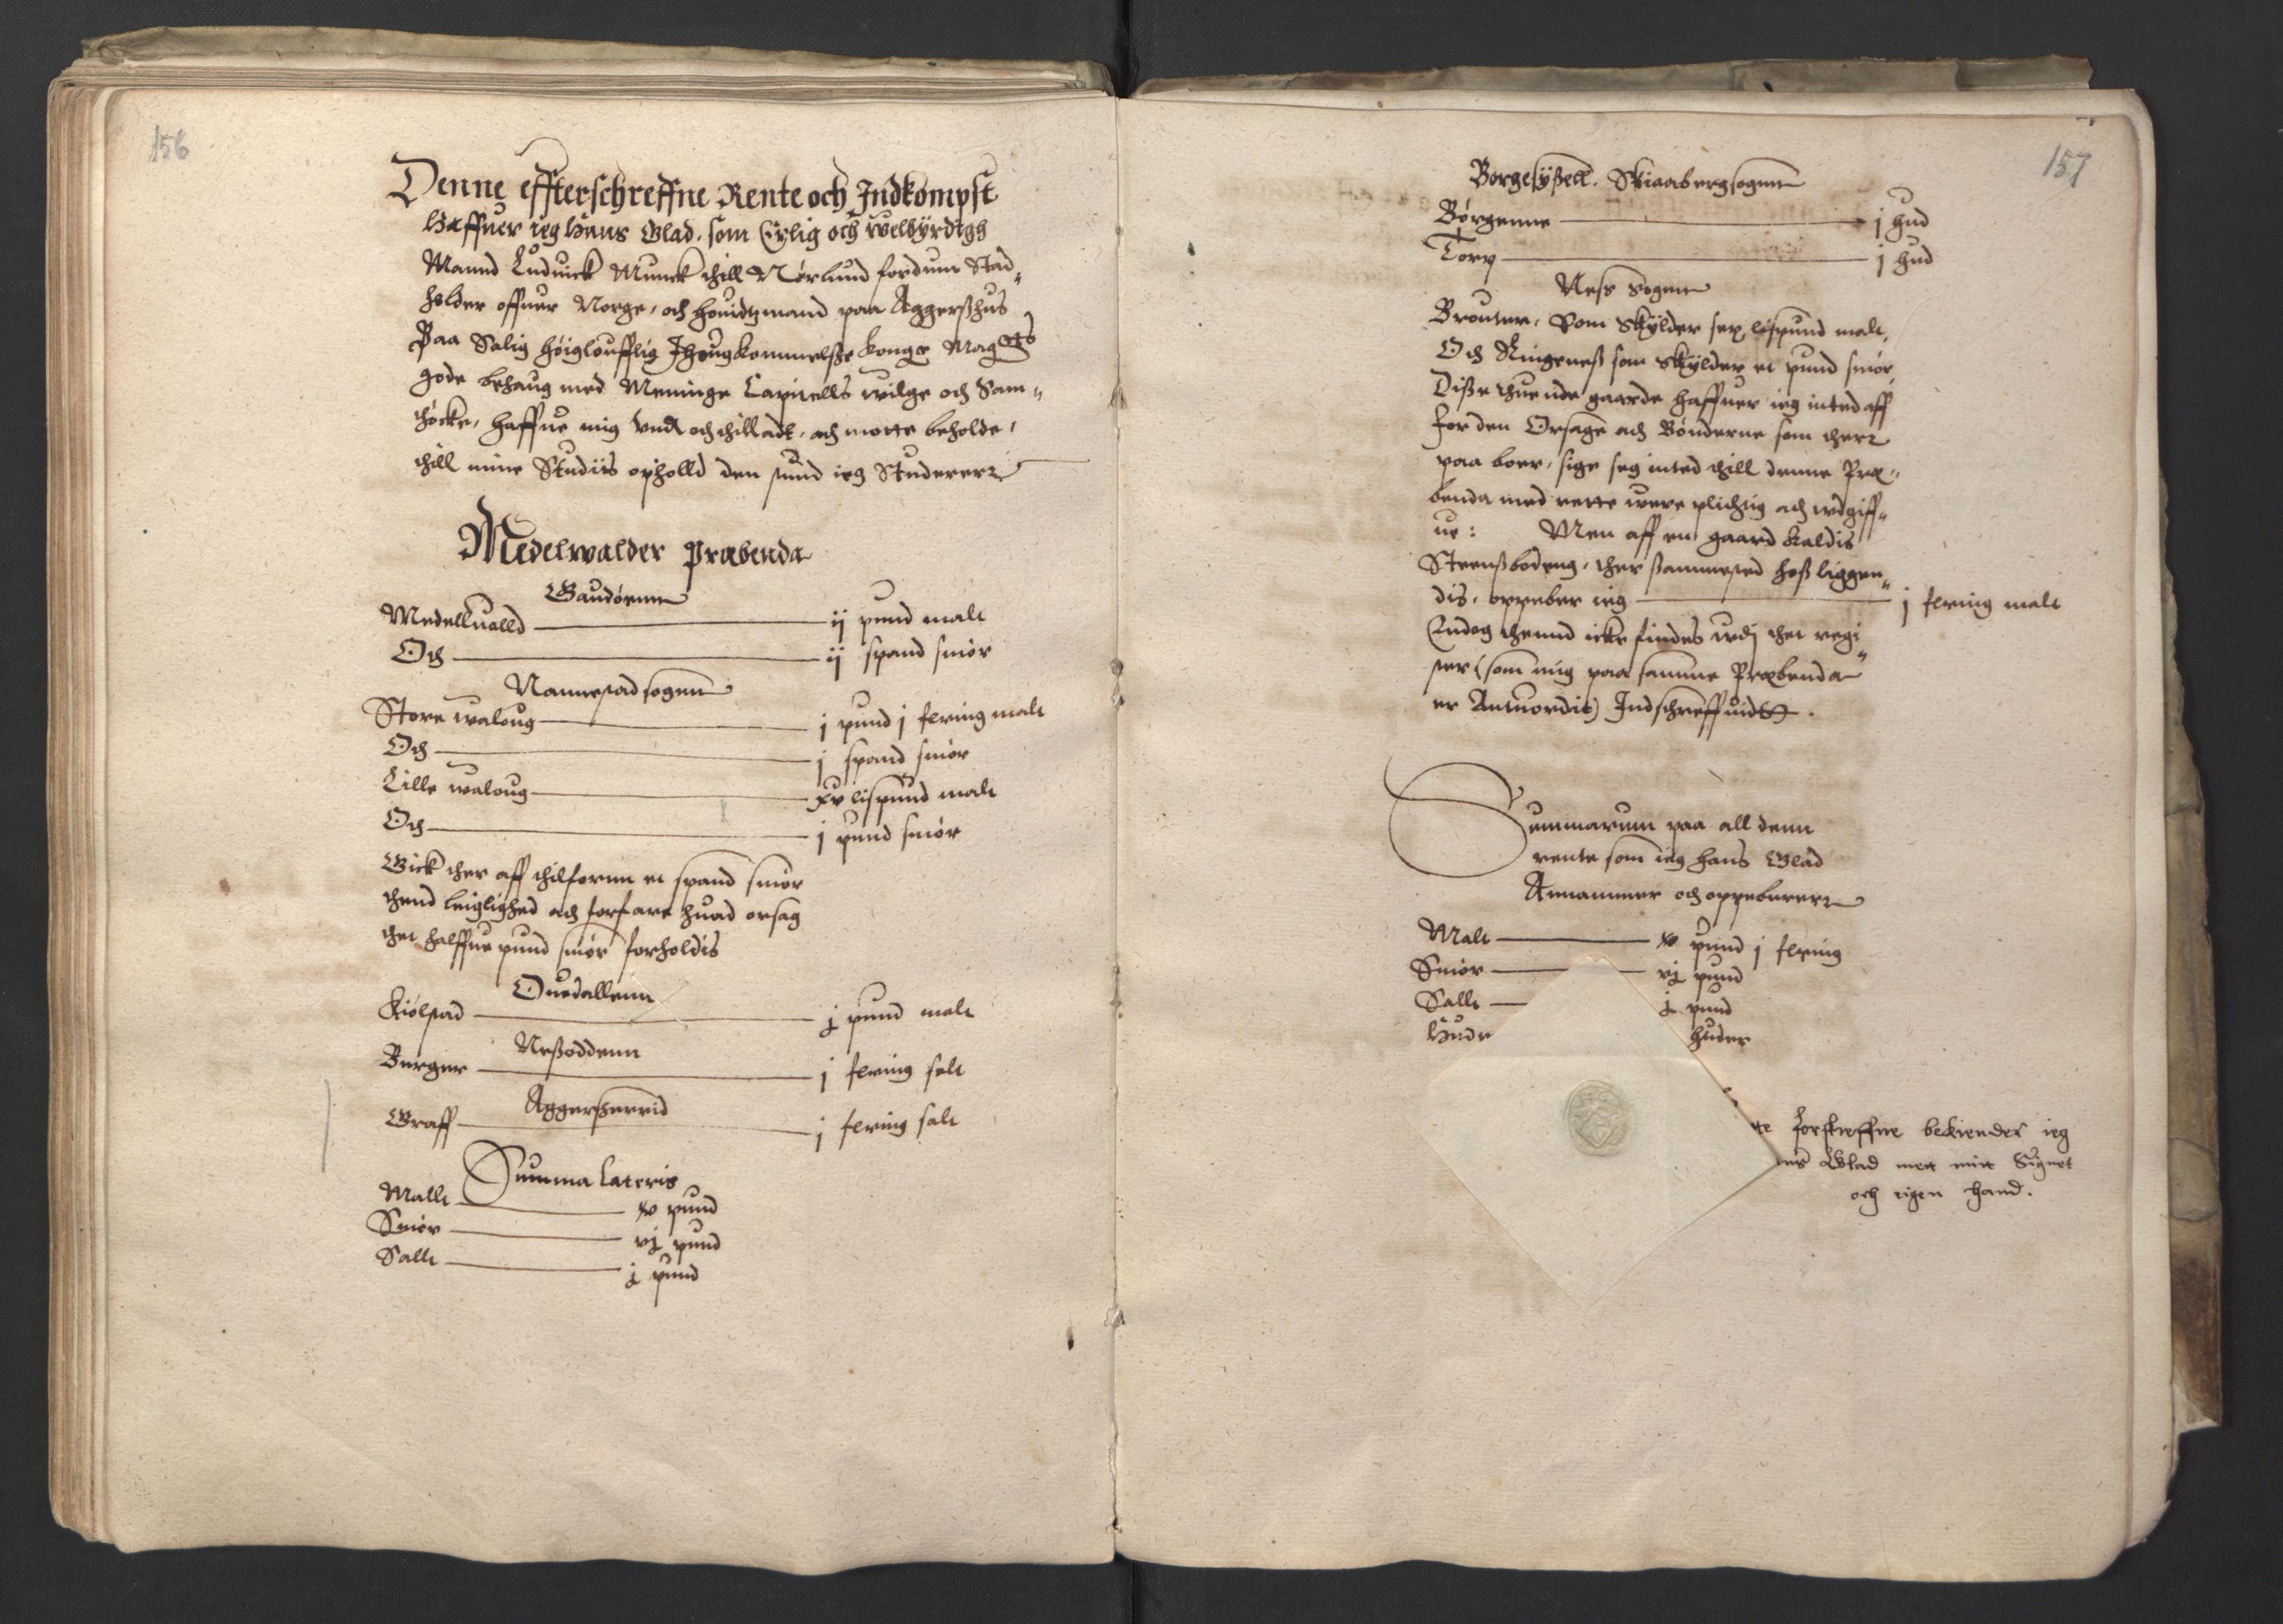 156
Denne effterschreffne Rente och Indkompst
Haffuer ieg Hans Glad, som Erlig och welbyrdigh
Mannd Luduick Munck thill Nørlund fordum Stad"
holder offuer Norge, och høuidtzmand paa Aggerßhus
Paa Salig høigloufflig Ihougkommelsße Konge Magtts
gode behaug med Meninge Capitells wilge och Sam"
thöcke, haffue mig undt och thilladt, och motte beholde,
thill mine Studiis ophold den stund ieg Studererr
Medelwalder Præbenda
Gaudørnn
Medelluolld ij pund malt
Och ij spand smør
Nannestad sogenn
Store waloug j pund j fering malt
Och j spand smør
Lille waloug xv lispund malt
Och j pund smør
Gick ther aff thilfornn et spand smør
thend leiglighed och forfare huad orsag
thet halffue pund smør forholdis
Ouedallenn
Kiølstad j pund malt
Neßoddenn
Berger j fering salt
Aggerßherrid
Graff j fering salt
Summa Lateris
Mallt xv pund
Smør vj pund
Sallt j pund
157
Borgesyßell. Skiaabergsogenn
Børgenne j hud
Torp j hud
Ness Sogenn
Brouten, Som skylder sex lispund malt,
Och Ringeneß som skylder et pund smør,
Disße thuende gaarde haffuer ieg inted aff
for den Orsage ath Bønderne som therr
paa boer, sige seg inted thill denne Præ"
benda med rette were plichtig ath wdgiff"
ue: Men aff en gaard kaldis
Steenßbodeng, ther sammested hoß liggen"
dis, oppeber ieg j fering malt
Endog thennd icke findes wdj thet regi"
ster (som mig paa samme Præbenda
er Antuordit) Indschreffuidtt.
Summarum paa all denn
rente som ieg Hans Glad
Annammer och oppebererr
Malt xv pund j fering
Smør vj pund
Sallt j pund
Hude huder
te forskreffne bekiender ieg
ns Glad met mit Signet
och eigen hand.